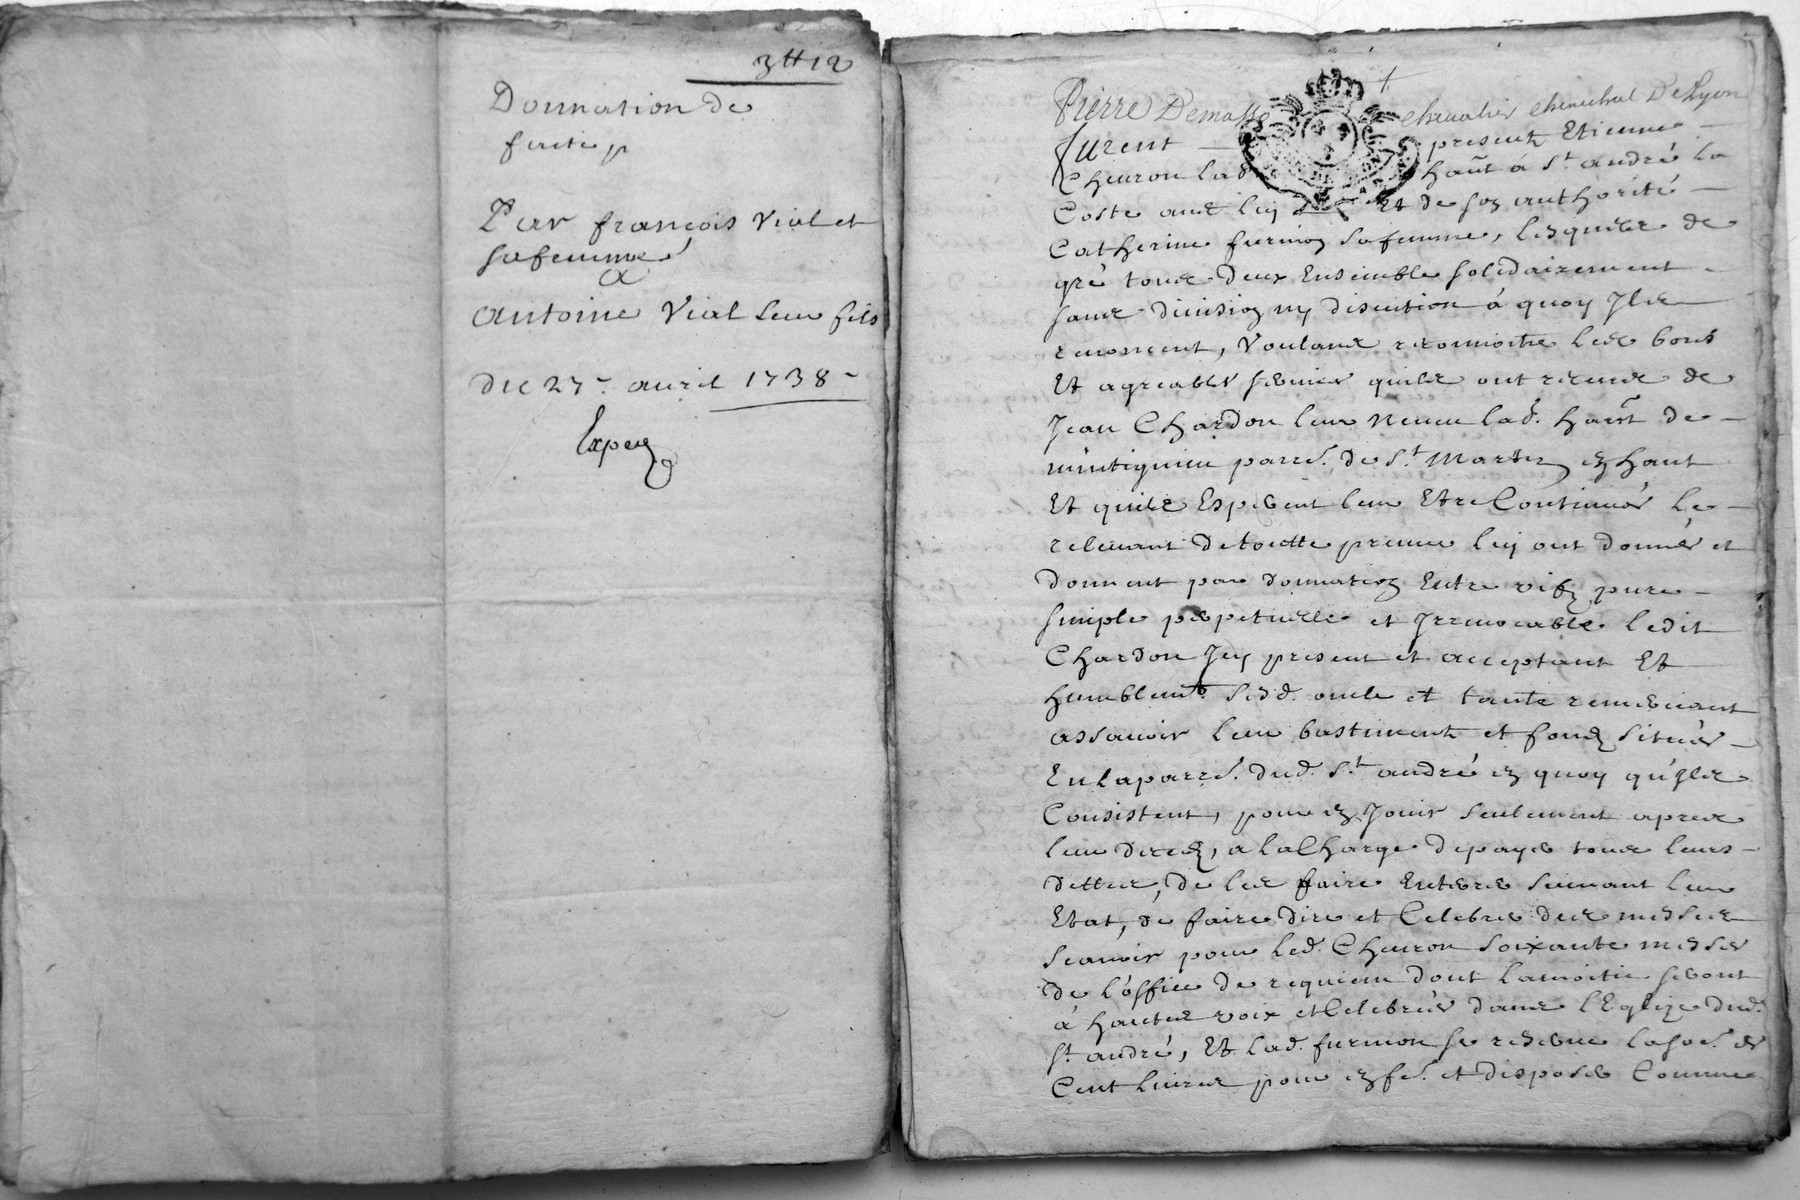 3tt 12
Donnation de
faite p
Par françois Vial et
sa femme
a
antoine Vial leur fils
du 27e avril 1738
Expen
Pierre Demasso chevalier chenechal De Lyon
furent present Etienne
Cheuron lad hant á St andré la
Coste avec luy Et de son authorité
Catherine furmion sa femme, lesquels de
gré tous deux Ensemble solidairement
sans division ny discution á quoy Ils
renoncent, Voulans reconnoitre les bons
Et agreables services quils ont receus de
Jean Chardon leur neveu lad. hant de
parre. de St. Martin en haut
Et quils Esperent leur Etre Continués le
relevant de toutte preuve luy ont donnés et
donnent par donnation Entre vifs pure
simple perpetuelle et Irrevocable ledit
Chardon Icy present et acceptant Et
humblemt. sesd. oncle et tante remerciant
assavoir leur bastiments et fonds situés
En la parre. dud. St. andré en quoy qu'ils
Consistent, pour en Jouir seulement apres
leur decés, a la Charge de payer tous leurs
dettes, de les faire Enterer suivant leur
Etat, de faire dire et Celebrer des messes
scavoir pour led. Cheuron soixante messes
de l'office de requiem dont la moitie seront
á hautes voix et Celebrées dans l'Eglize dud.
St. andré, Et lad. furmion se reserve la soe. de
Cent livres pour en fe. et disposer Comme